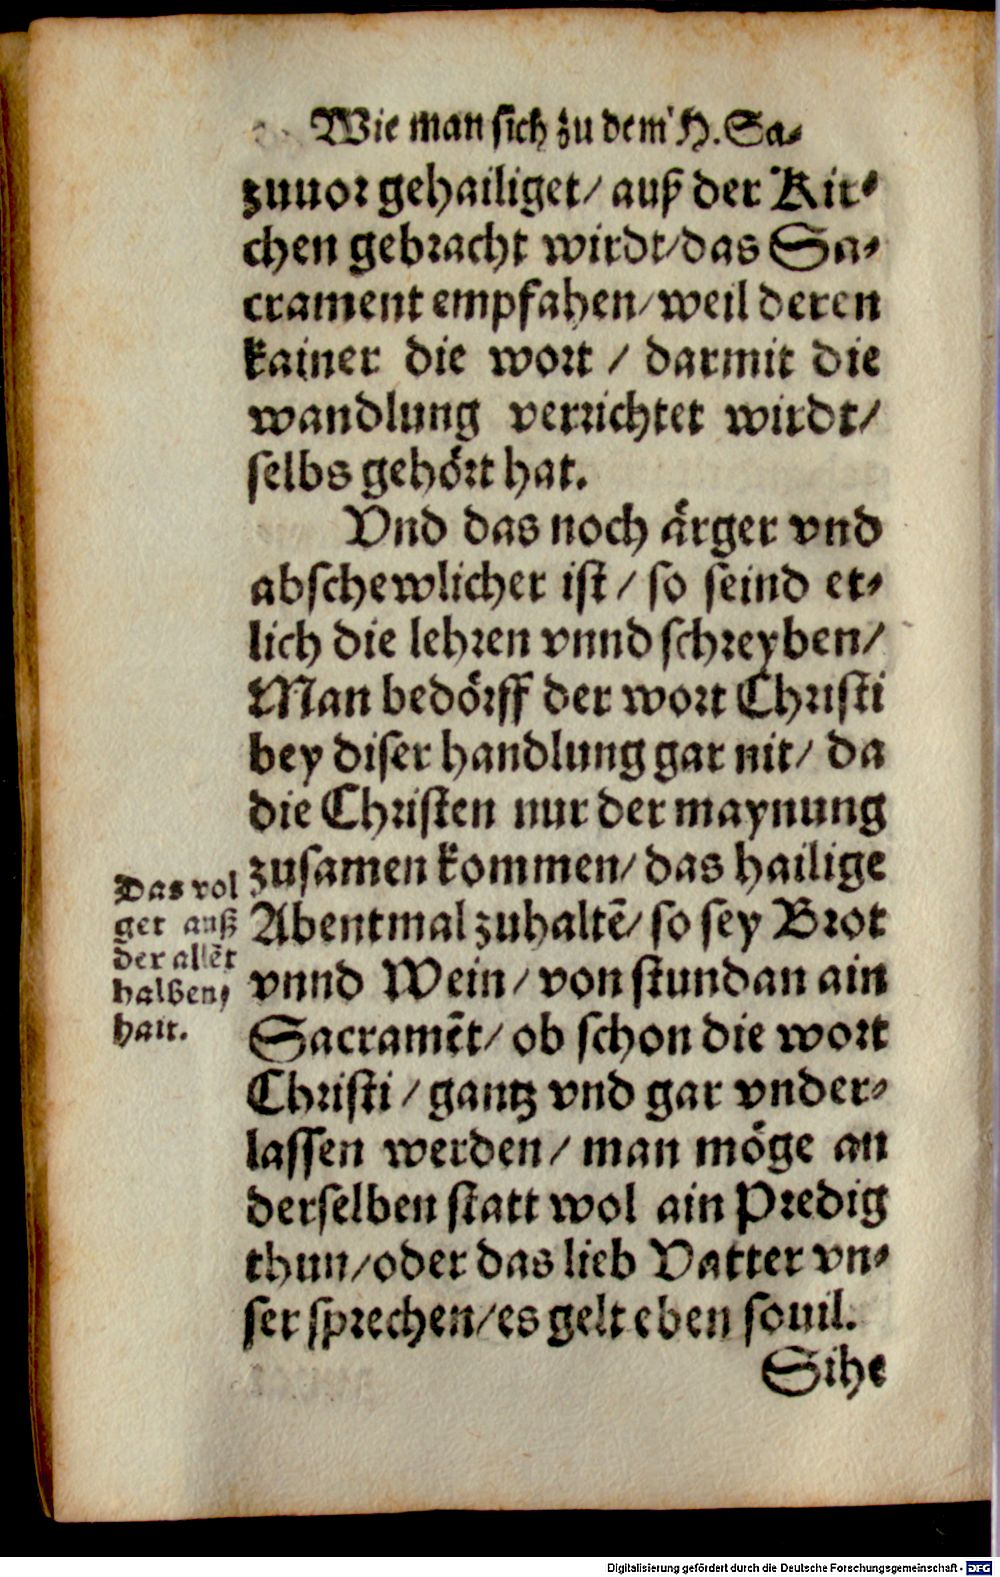 Wie man sich zu dem H. Sa⸗
zuuor gehailiget/ auß der Kir⸗
chen gebracht wirdt/das Sa⸗
crament empfahen/weil deren
kainer die wort / darmit die
wandlung verrichtet wirdt/
selbs gehört hat.
Vnd das noch ärger vnd
abschewlicher ist / so seind et⸗
lich die lehren vnnd schreyben/
Man bedörff der wort Christi
bey diser handlung gar nit/ da
die Christen nur der maynung
zusamen kommen/ das hailige
Abentmal zuhaltē/ so sey Brot
vnnd Wein/ von stundan ain
Sacramēt/ ob schon die wort
Christi / gantz vnd gar vnder⸗
lassen werden/ man möge an
derselben statt wol ain Predig
thun/oder das lieb Vatter vn⸗
ser sprechen/es gelt eben souil.
Sihe
Das vol
get auß
der allēt
halben,
hait.
Digitalisierung gefördert durch die Deutsche Forschungsgemeinschaft - DFG